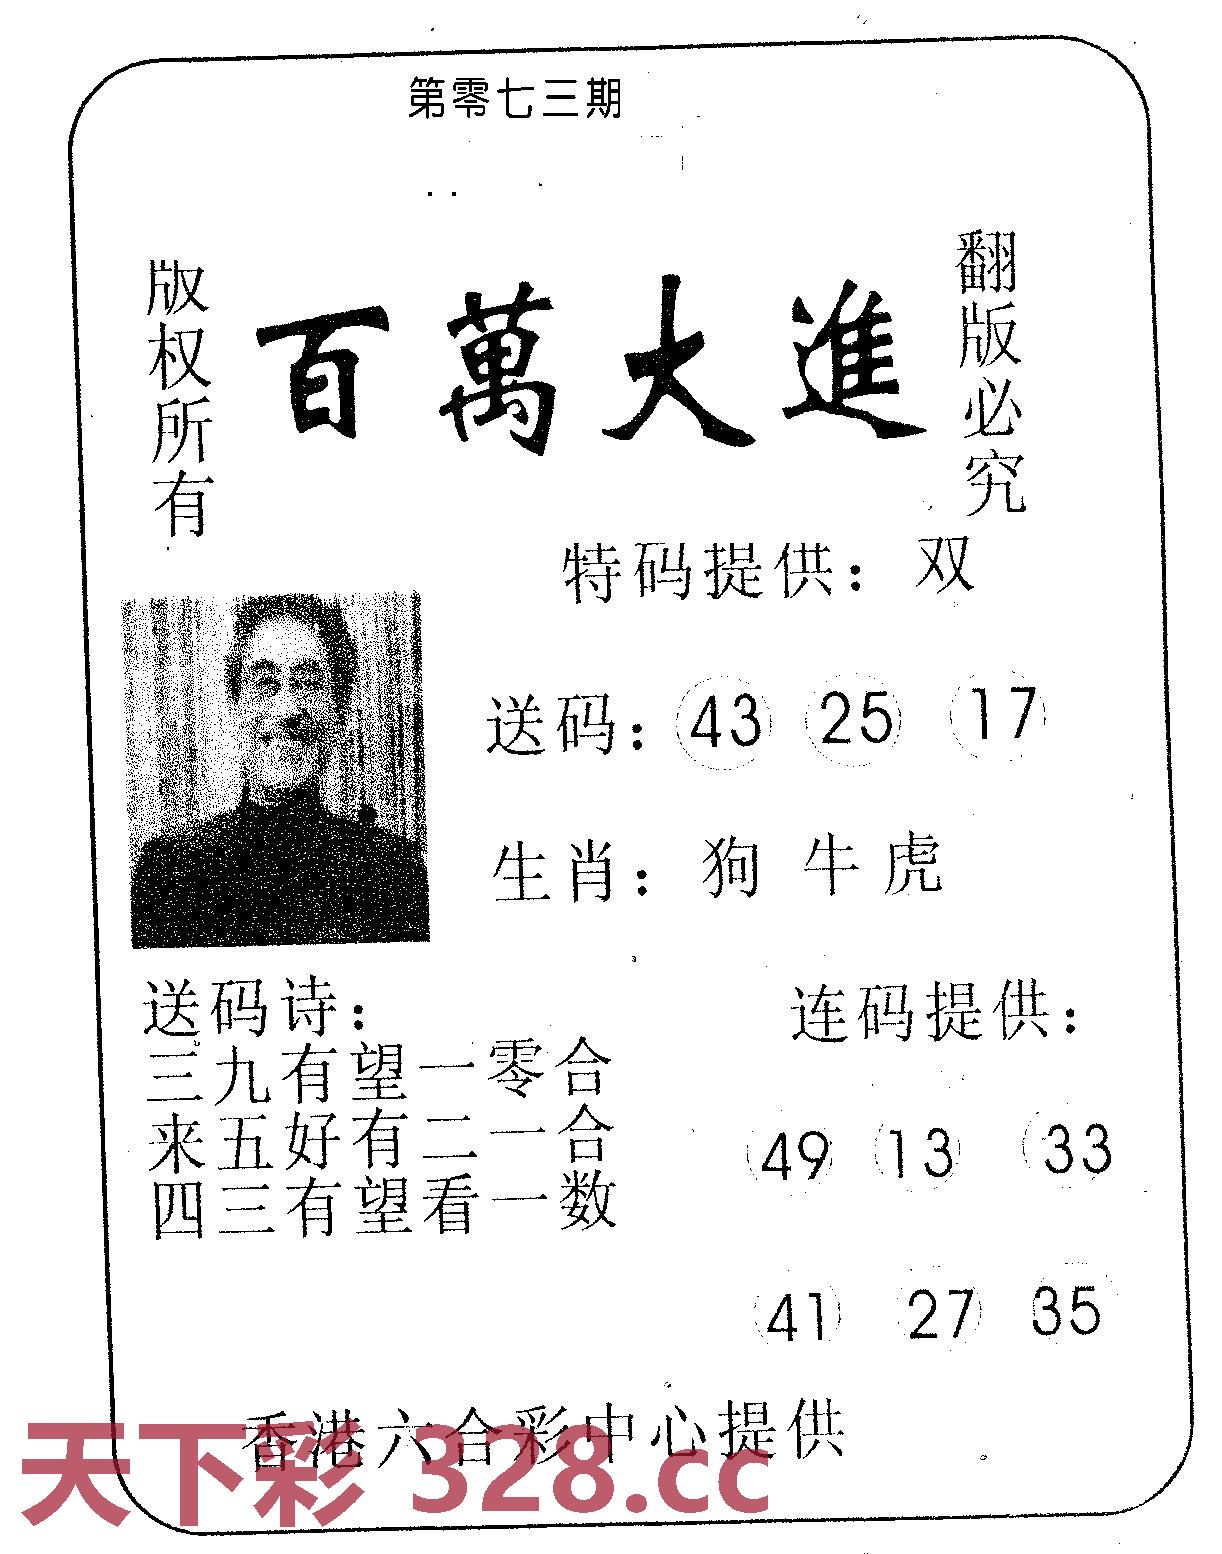 第零七三期
版权所有
百萬大進
翻版必究
特码提供：双
送码：43 25 17
生肖：狗 牛 虎
送码诗：
三九有望一零合
来五好有二一合
四三有望看一数
连码提供：
49 13 33
41 27 35
香港六合彩中心提供
天下彩 328.cc